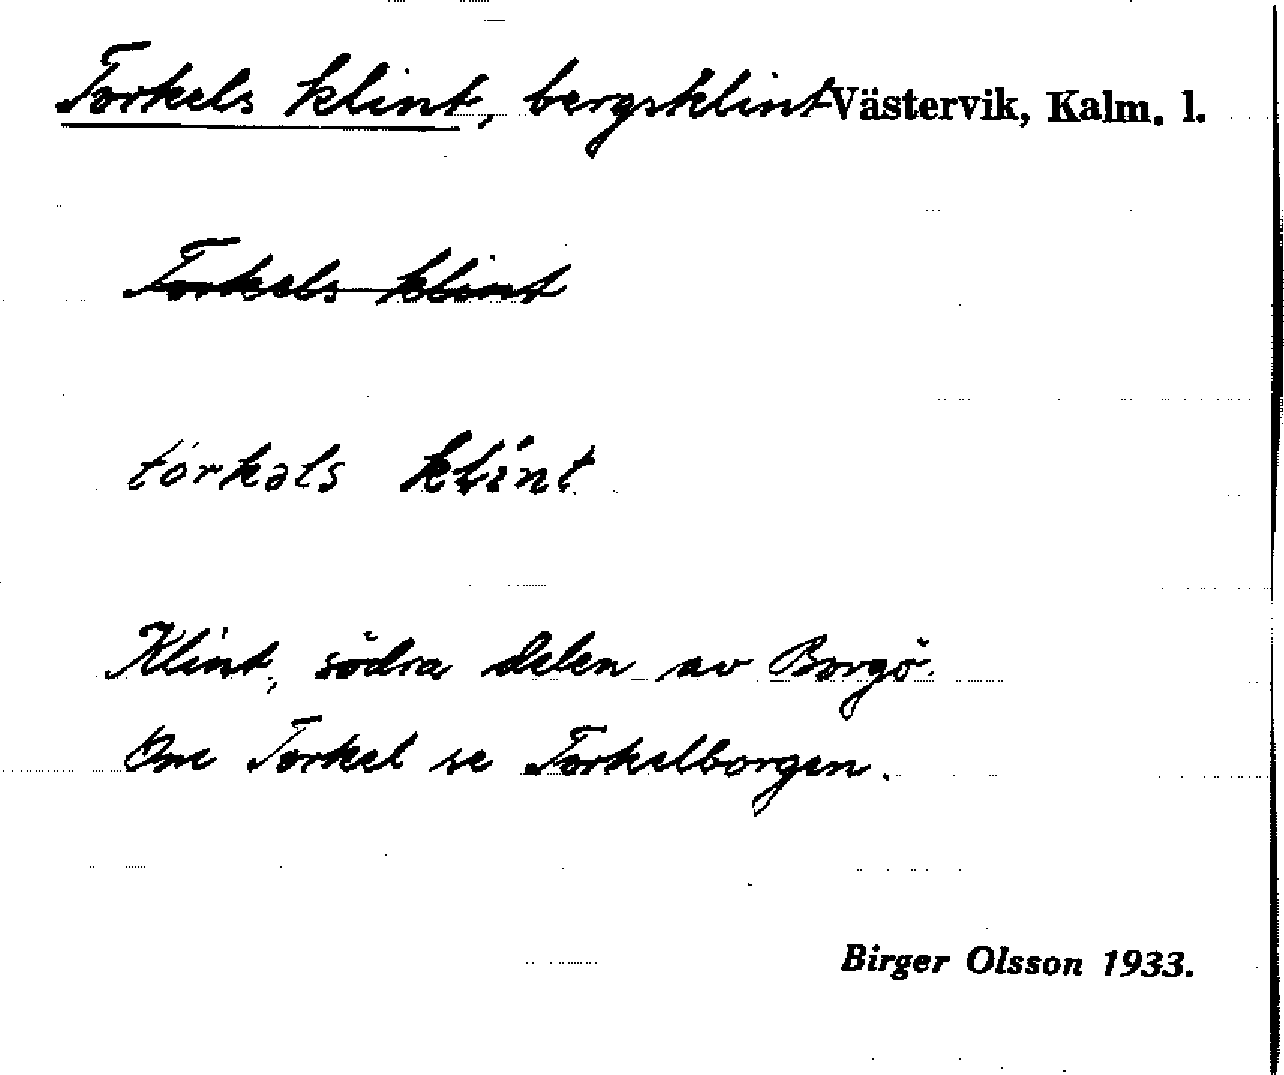 Torkels klint, bergsklint Västervik, Kalm. l.
Torkels klint
tórkəls klínt
Klint, södra delen av Borgö.
Om Torkel se Torkelborgen.
Birger Olsson 1933.